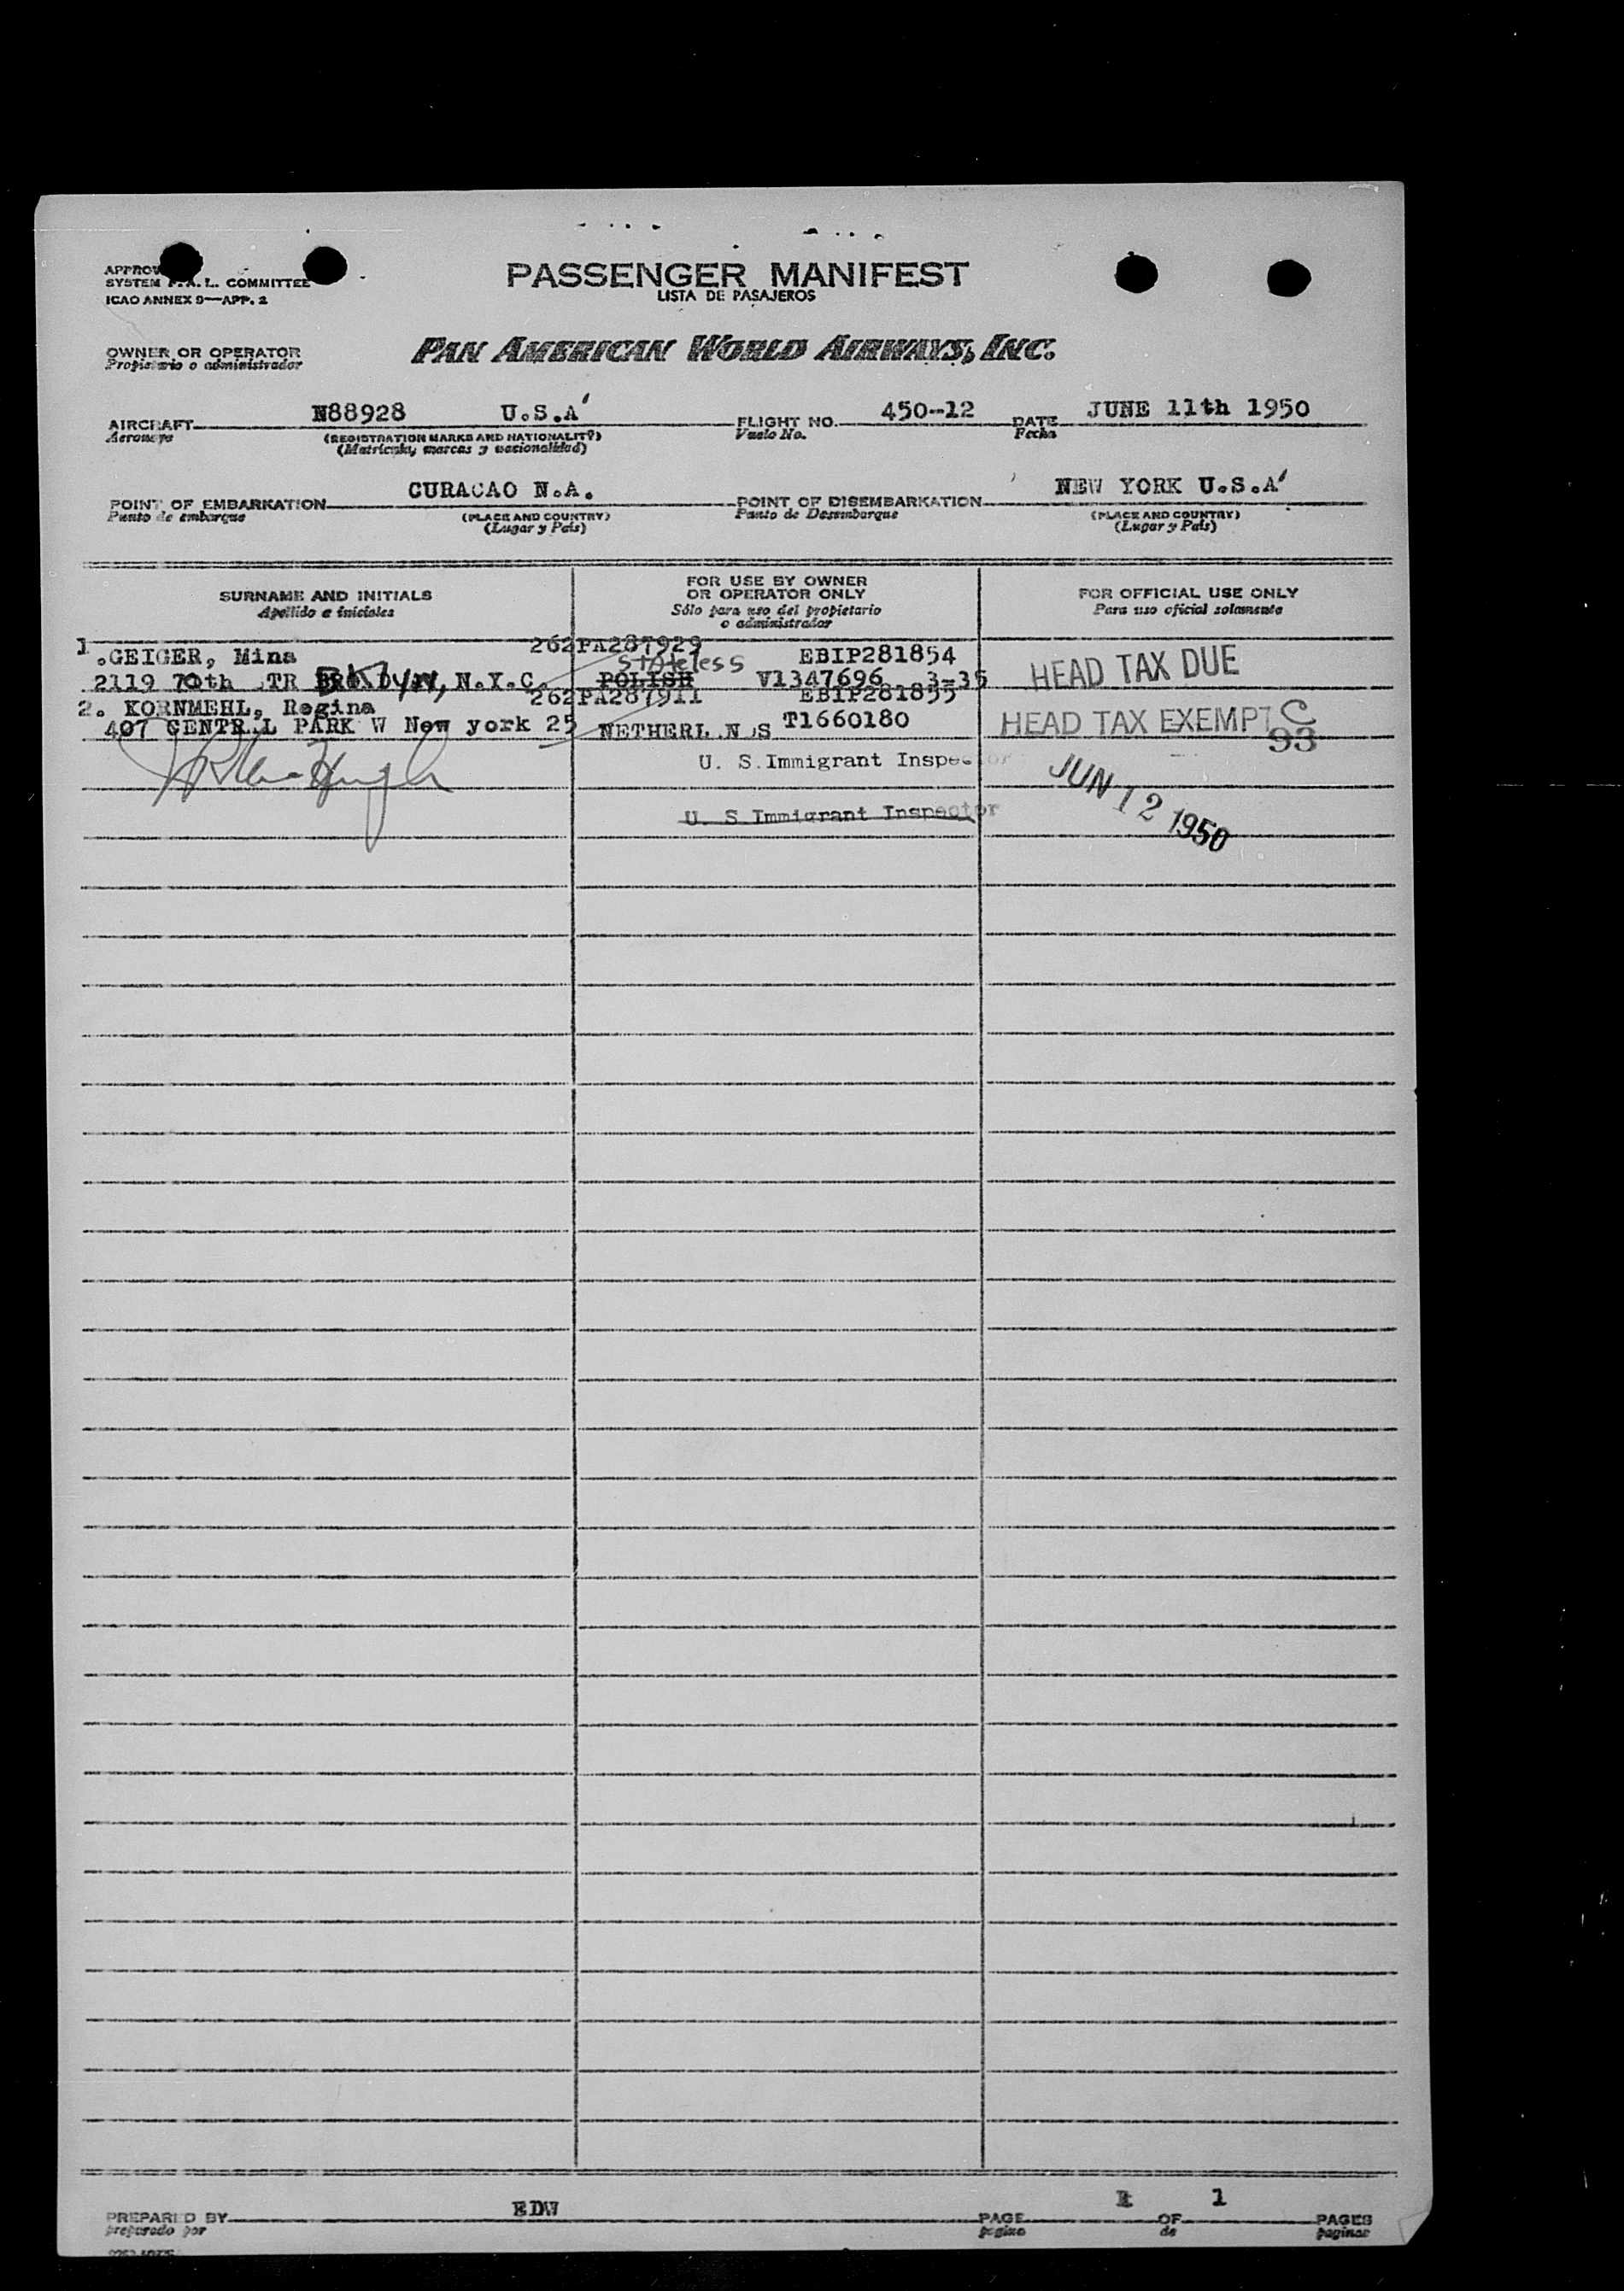 PASSENGER MANIFEST
LISTA DE PASAJEROS
SYSTEM F.A.L. COMMITTEE
ICAO ANNEX 9—APP. 2
OWNER OR OPERATOR
Propietario o administrador
PAN AMERICAN WORLD AIRWAYS, INC.
AIRCRAFT N88928 U.S.A FLIGHT NO. 450-12 DATE JUNE 11th 1950
Aeronave (REGISTRATION MARKS AND NATIONALITY) Vuelo No. Fecha
(Matricula, marcas y nacionalidad)
POINT OF EMBARKATION CURACAO N.A. POINT OF DISEMBARKATION NEW YORK U.S.A
Punto de embarque (PLACE AND COUNTRY) Punto de Desembarque (PLACE AND COUNTRY)
(Lugar y País) (Lugar y País)
SURNAME AND INITIALS FOR USE BY OWNER OR OPERATOR ONLY FOR OFFICIAL USE ONLY
Apellido e iniciales Sólo para uso del propietario o administrador Para uso oficial solamente
262PA287929
1.GEIGER, Mina stateless EBIP281854 HEAD TAX DUE
2119 70th TR BKLYN, N.Y.C. POLISH V1347696 3-35
262PA287911 EBIP281855
2. KORNMEHL, Regina
407 CENTR.L PARK W New york 25 NETHERL.N.S T1660180 HEAD TAX EXEMPT C
93
U. S. Immigrant Inspector
JUN 12 1950
U. S Immigrant Inspector
PREPARED BY EDW PAGE 1 OF 1 PAGES
preparado por pagina de paginas